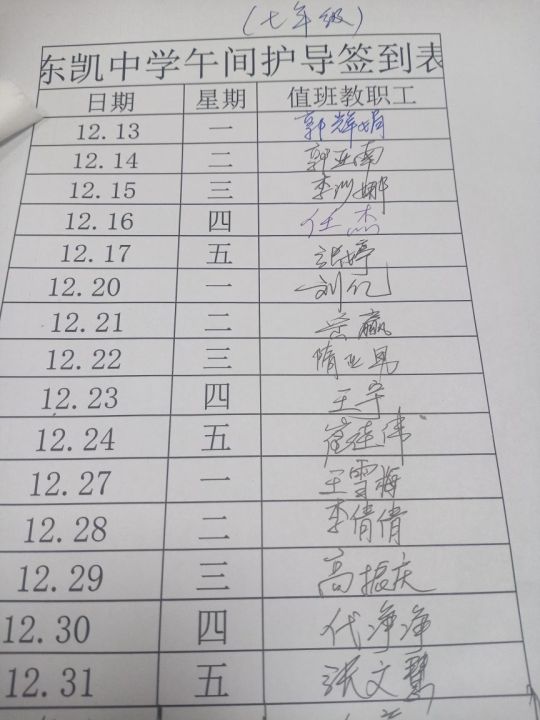 (七年级)
东凯中学午间护导签到表
日期 星期 值班教职工
12.13 一 郭辉娟
12.14 二 郭亚南
12.15 三 李洲娜
12.16 四 任杰
12.17 五 张婷
12.20 一 刘亿
12.21 二 吴赢
12.22 三 隋亚男
12.23 四 王宇
12.24 五 崔廷伟
12.27 一 王雪梅
12.28 二 李倩倩
12.29 三 高振庆
12.30 四 代净净
12.31 五 张文慧